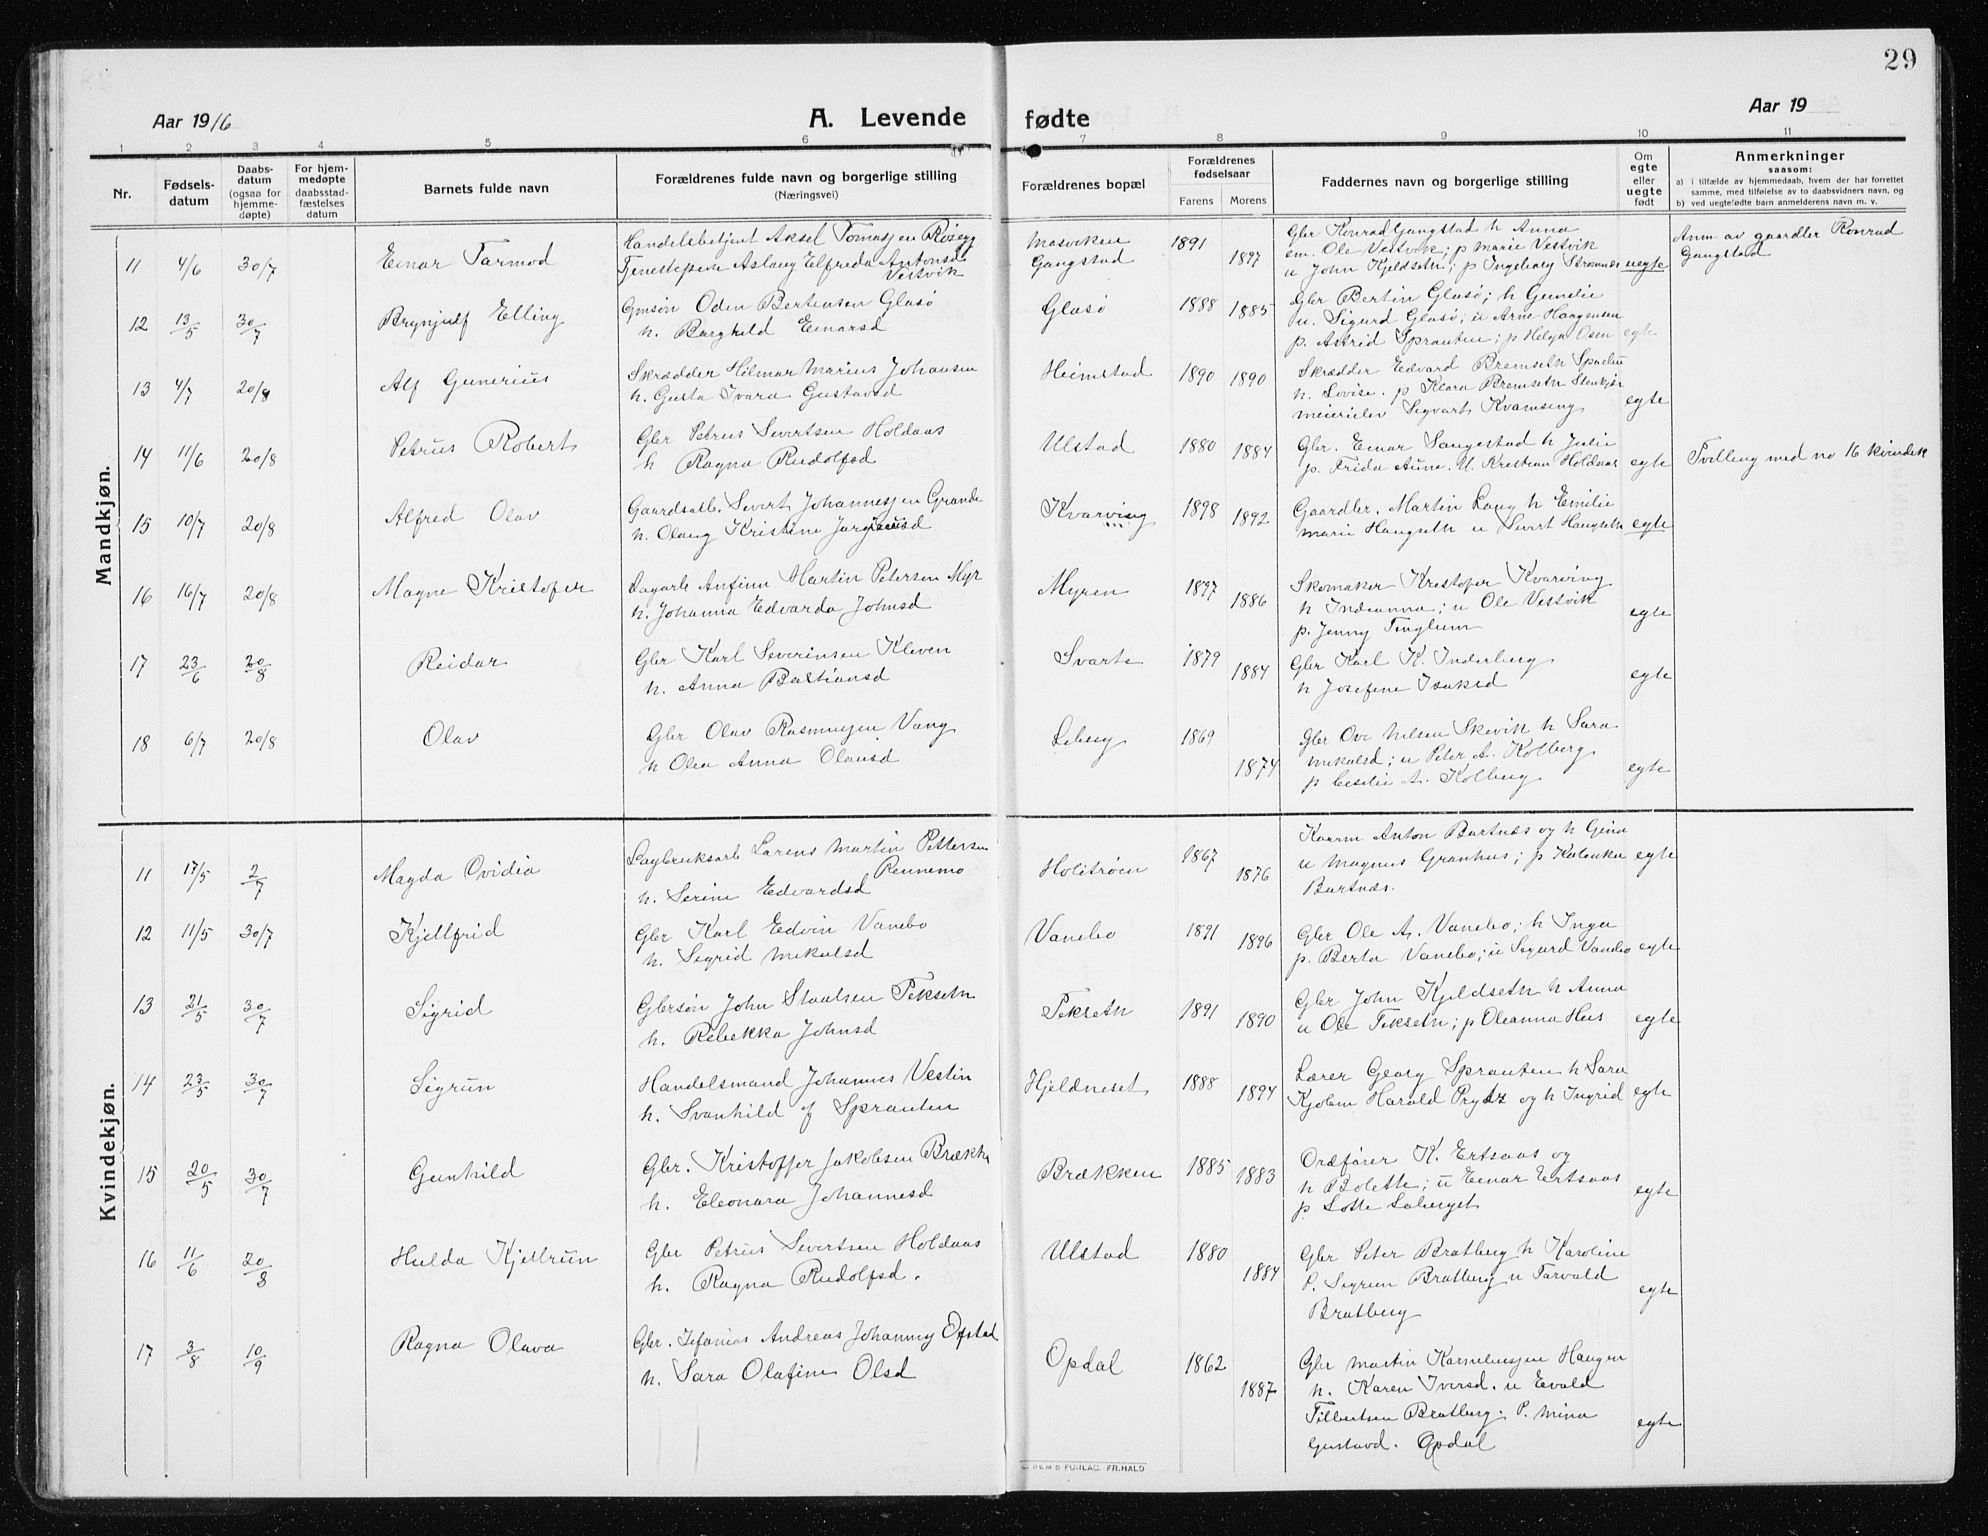 29
Aar 1916
A. Levende fødte
Aar 19
1 2 3 4 5 6 7 8 9 10 11
Nr.
Fødsels-
datum
Daabs-
datum
(ogsaa for
hjemme-
døpte)
For hjem-
medøpte
daabsstad-
fæstelses
datum
Barnets fulde navn
Forældrenes fulde navn og borgerlige stilling
(Næringsvei)
Forældrenes bopæl
Forældrenes
fødselsaar
Farens Morens
Faddernes navn og borgerlige stilling
Om
egte
eller
uegte
født
Anmerkninger
saasom:
a) i tilfælde av hjemmedaab, hvem der har forrettet
samme, med tilføielse av to daabsvidners navn, og
b) ved uegtefødte barn anmelderens navn m. v.
Mandkjøn.
11 4/6 30/7 Einar Tormod
Handelsbetjent Aksel Tomassen
Tjenestepike Aslaug Elfreda Antonsd
Vestvik
Masviken
Gangstad
1891 1897
Gbr Konrad Gangstad h Anna
em. Ole Vestvik; p Marie Vestvik
u John Kjeldseth; p Ingeborg Strømnes uegte
Anm av gaardbr Konrad
Gangstad
12 13/5 30/7 Brynjulf Elling
Gmsøn Oden Bertinsen Glasø
h. Borghild Einarsd
Glasø
1888 1885
Gbr Bertin Glasø; h Gunelie
u. Sigurd Glasø; u Arne Haagensen
p. Astrid Sprauten; p Helga Osen egte
13 4/7 20/8 Alf Gunerius
Skrædder Hilmar Marius Johansen
h. Gusta Ivara Gustavsd
Heimstad
1890 1890
Skrædder Edvard Bremseth
h. Lovise. p Klara Bremseth Stenkjær
meierielev Sigvart Kvamseng egte
14 11/6 20/8 Petrus Robert
Gbr Petrus Sivertsen Holdaas
h Ragna Rudolfsd
Ulstad
1880 1884
Gbr. Einar Saugestad h Julie
p. Frida Aune. U. Kristian Holdaas egte
Tvilling med no 16 kvindek
15 10/7 20/8 Alfred Olav
Gaardsarb. Sivert Johannesen Grande
h. Olaug Kristine Jørginusd
Kvarving
1898 1892
Gaardbr. Martin Lang h Emilie
Marie Haugseth u Sivert Haugseth egte
16 16/7 20/8 Magne Kristofer
Dagarb Anfinn Martin Petersen Myr
h. Johanna Edvarda Johnsd
Myren
1897 1886
Skomaker Kristofer Kvarving
h Indianna; u Ole Vestvik
p. Jenny Tinglum egte
17 23/6 20/8 Reidar
Gbr Karl Severinsen Kleven
h. Anna Bastiansd
Svarte
1879 1884
Gbr Karl K. Inderberg
h Josefine Isaksd egte
18 6/7 20/8 Olav
Gbr Olav Rasmussen Vang
h Olea Anna Olausd
Leberg
1869 1874
Gbr Ove Nilsen Skevik h Sara
Mikalsd; u Peter A. Kolberg
p Cesilie A. Kolberg egte
Kvindekjøn.
11 17/5 2/7 Magda Ovidia
Sagbruksarb Lorens Martin Pettersen
Rennemo
h. Serine Edvardsd
Holitrøen
1867 1876
Anton Bartnæs og h Gina
u Magnus Granhus; p
Bartnæs. egte
12 11/5 30/7 Kjellfrid
Gbr Karl Edvin Vanebo
h. Sigrid Mikalsd
Vanebo
1891 1896
Gbr Ole A. Vanebo; h Inga
p. Berta Vanebo; u Sigurd Vanebo egte
13 21/5 30/7 Sigrid
Gbrsøn John Staalsen Tekseth
h. Rebekka Johnsd
Tekseth
1891 1890
Gbr John Kjeldseth h Anna
u Ole Tekseth; p Oleanna Heis egte
14 23/5 30/7 Sigrun
Handelsmand Johannes Vestin
h. Svanhild f Sprauten
Hjeldneset
1888 1894
Lærer Georg Sprauten h Sara
Kjøbm Harald Prydz og h Ingrid egte
15 20/5 30/7 Gunhild
Gbr. Kristoffer Jakobsen Brækk
h. Eleonora Johannesd
Brækken
1885 1883
Ordfører K. Ertsaas og
h Bolette; u Einar Ertsaas
p Lotte Saberget egte
16 11/6 20/8 Hulda Kjellrun
Gbr Petrus Sivertsen Holdaas
h. Ragna Rudolfsd.
Ulstad
1880 1884
Gbr Peter Bratberg h Karoline
P. Sigrun Bratberg u Torvald
Bratberg egte
17 3/8 10/9 Ragna Olava
Gbr. Sefanias Andreas Johannes Ofstad
h. Sara Olafine Olsd
Opdal
1862 1887
Gbr Martin Kornelinssen Haugen
h. Karen Iversd. u Evald
Tilbertsen Bratberg. P. Mina
Gustavd. Opdal egte
FORLAG. FR. HALD